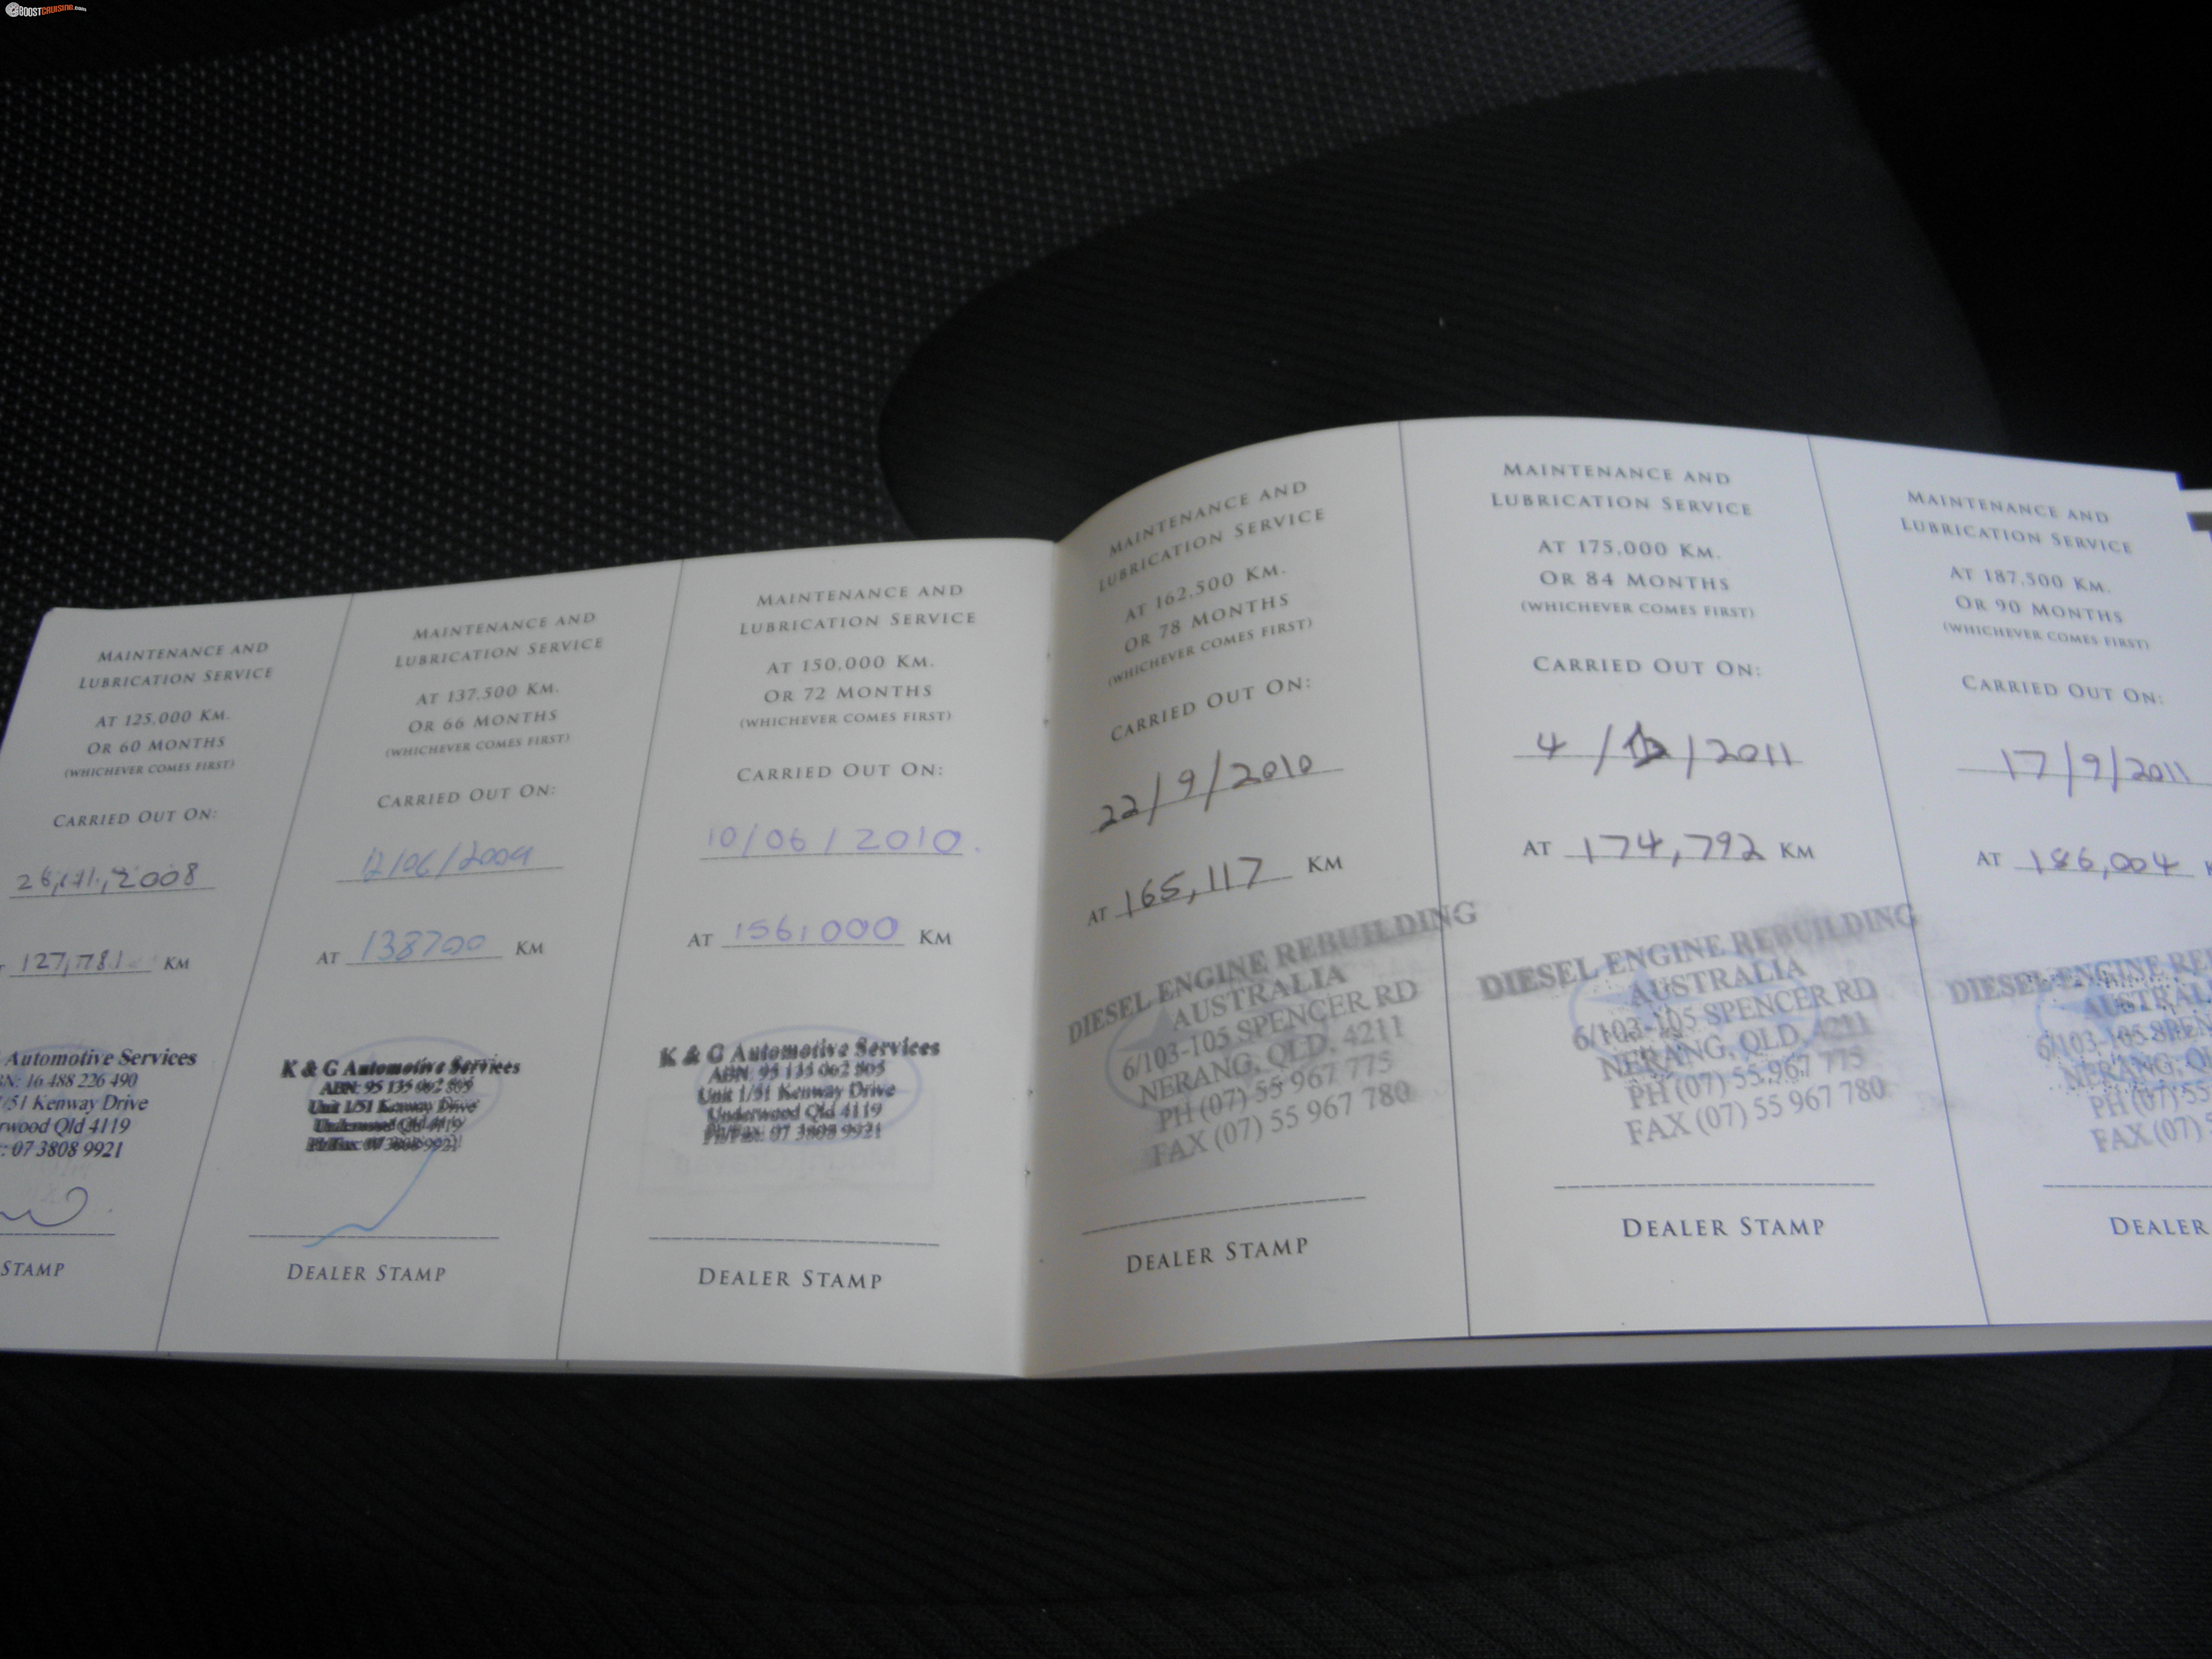 BOOSTCRUISING.com
MAINTENANCE AND
LUBRICATION SERVICE
AT 125,000 KM.
OR 60 MONTHS
(WHICHEVER COMES FIRST)
CARRIED OUT ON:
2008
127,781 KM
Automotive Services
N: 16 488 226 490
/51 Kenway Drive
rwood Qld 4119
: 07 3808 9921
STAMP
MAINTENANCE AND
LUBRICATION SERVICE
AT 137,500 KM.
OR 66 MONTHS
(WHICHEVER COMES FIRST)
CARRIED OUT ON:
/06/2009
AT 138700 KM
K & G Automotive Services
ABN: 95 135 062 805
Unit 1/51 Kenway Drive
Underwood Qld 4119
Ph/Fax: 07 3808 9921
DEALER STAMP
MAINTENANCE AND
LUBRICATION SERVICE
AT 150,000 KM.
OR 72 MONTHS
(WHICHEVER COMES FIRST)
CARRIED OUT ON:
10/06/2010.
AT 156,000 KM
K & G Automotive Services
ABN: 95 135 062 805
Unit 1/51 Kenway Drive
Underwood Qld 4119
Ph/Fax: 07 3808 9921
DEALER STAMP
MAINTENANCE AND
LUBRICATION SERVICE
AT 162,500 KM.
OR 78 MONTHS
(WHICHEVER COMES FIRST)
CARRIED OUT ON:
22/9/2010
AT 165,117 KM
DIESEL ENGINE REBUILDING
AUSTRALIA
6/103-105 SPENCER RD
NERANG, QLD, 4211
PH (07) 55 967 775
FAX (07) 55 967 780
DEALER STAMP
MAINTENANCE AND
LUBRICATION SERVICE
AT 175,000 KM.
OR 84 MONTHS
(WHICHEVER COMES FIRST)
CARRIED OUT ON:
4/ /2011
AT 174,792 KM
DIESEL ENGINE REBUILDING
AUSTRALIA
6/103-105 SPENCER RD
NERANG, QLD, 4211
PH (07) 55 967 775
FAX (07) 55 967 780
DEALER STAMP
MAINTENANCE AND
LUBRICATION SERVICE
AT 187,500 KM.
OR 90 MONTHS
(WHICHEVER COMES FIRST)
CARRIED OUT ON:
17/9/2011
AT 186,004 K
DIESEL ENGINE RE
AUSTRAL
6/103-105 SPEN
NERANG, Q
PH (07) 55
FAX (07)
DEALER